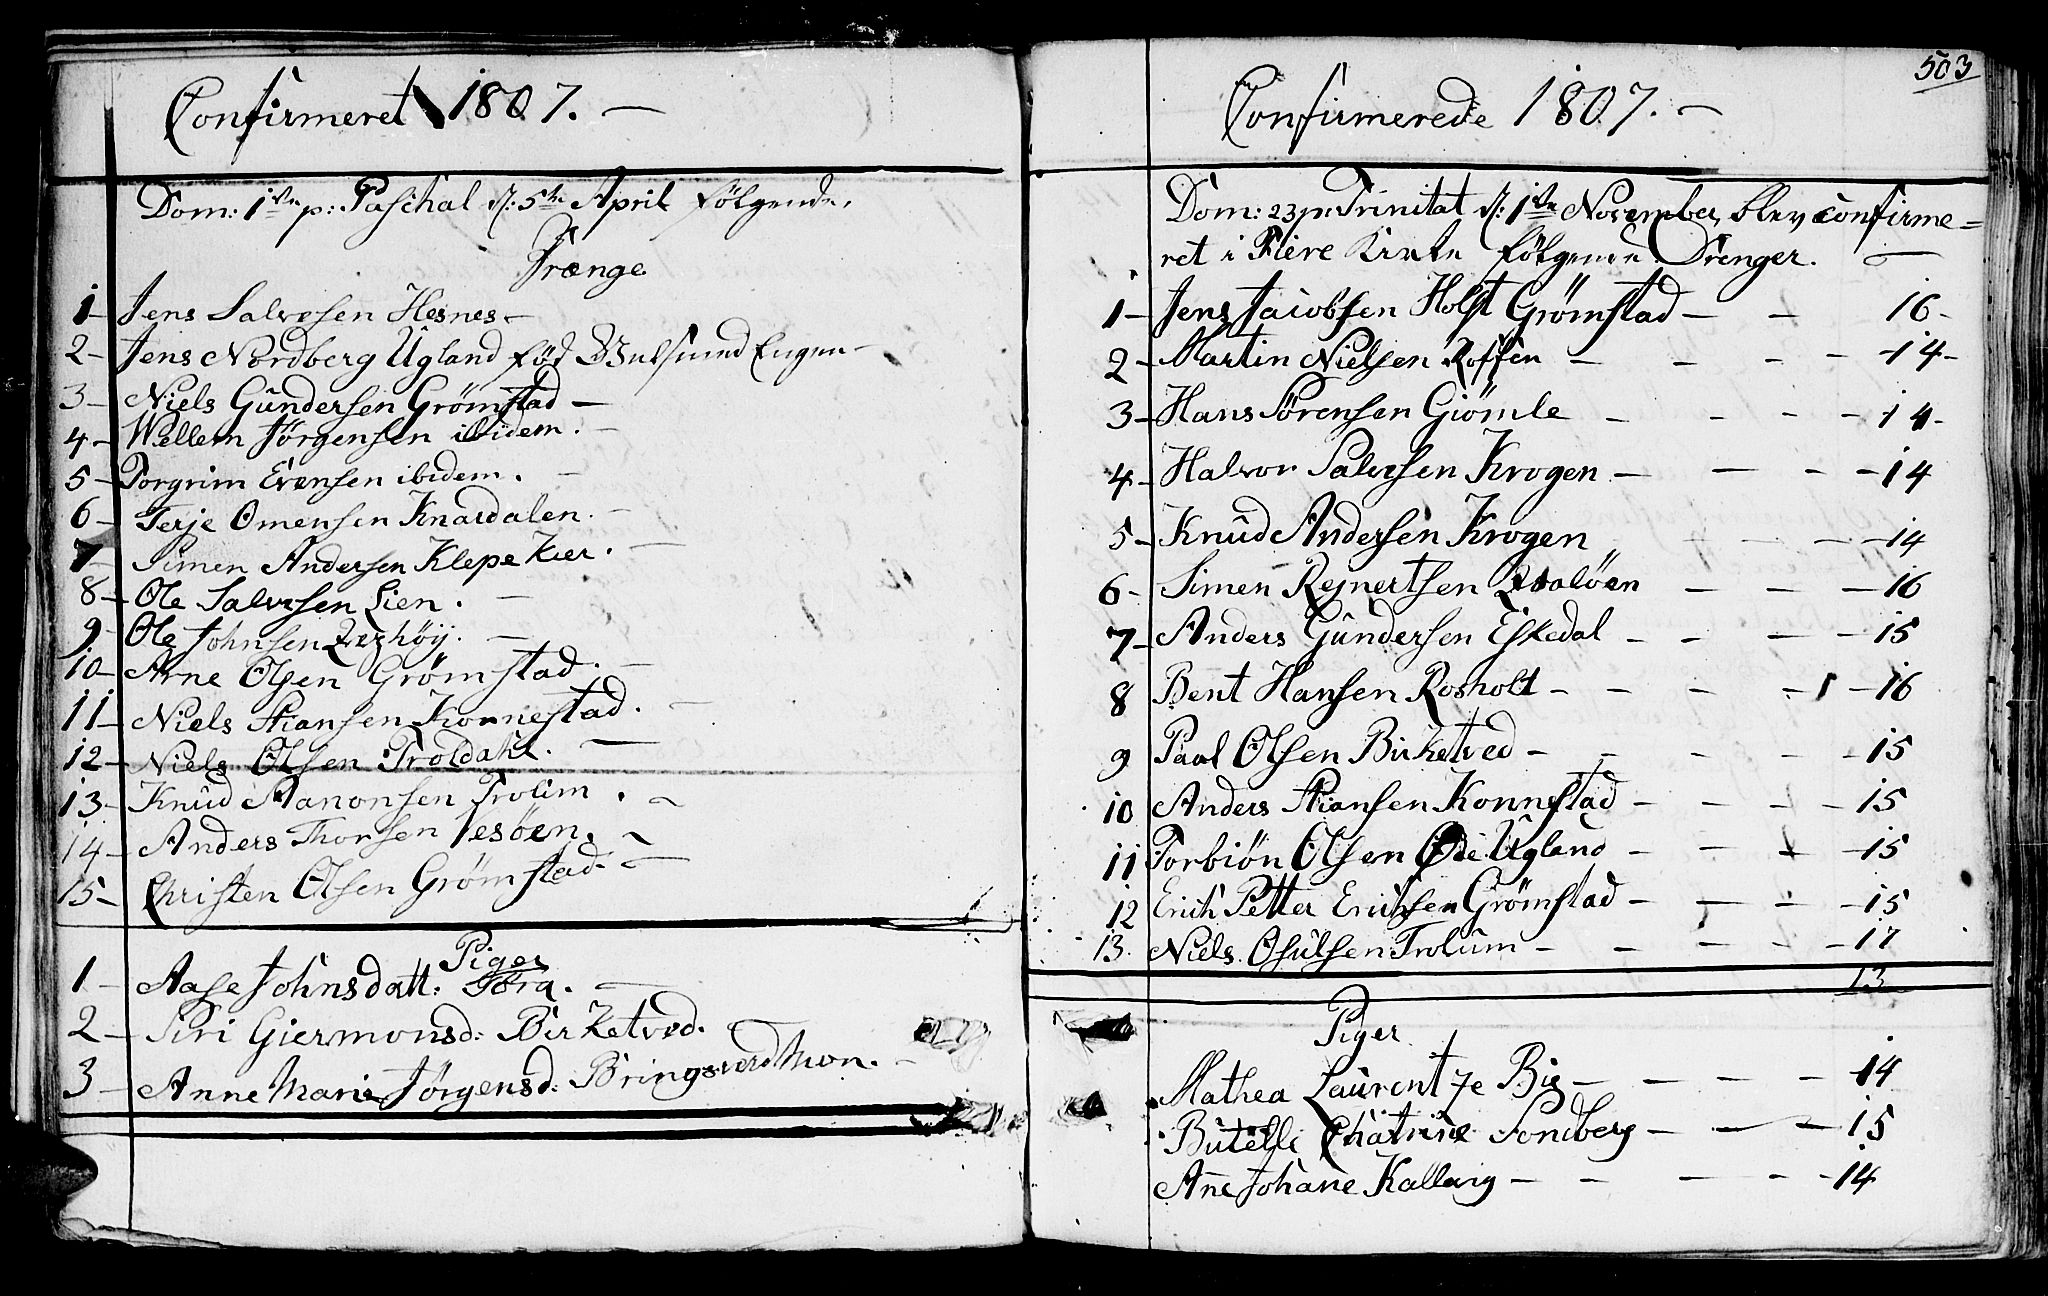 Confirmeret 1807. —
Dom: 1ste p: Paschal d: 5te April følgende,
Drænge
1 - Jens Salvesen Hesnes -
2 - Jens Nordberg Ugland fød
3 - Niels Gundersen Grømstad —
4 - Wellem Jørgensen ibidem. —
5 - Torgrim Evensen ibidem. —
6 - Terje Omensen Knardalen. —
7 - Simen Andersen Klepekier. —
8 - Ole Salvesen Lien. —
9 - Ole Johnsen —
10 - Arne Olsen Grømstad. —
11 - Niels Stiansen Konnestad. —
12 - Niels Olsen Troldahl. —
13 - Knud Aanonsen Trolim. ~
14 - Anders Thorsen Vesøen. ~
15 - Christen Olsen Grømstad. ~
Piger
1 - Aase Johnsdatt: —
2 - Siri Giermonsd: Birketved.
3 - Anne Marie Jørgensd: Bringsverd Moen. —
503
Confirmerede 1807. —
Dom: 23 p: Trinitat d: 1ste November blev confirme=
ret i Fiere Kirke følgende Drenger. —
1 - Jens Jacobsen Holst Grømstad — — 16 -
2 - Martin Nielsen — — — — 14 -
3 - Hans Sørensen Giømle — — — — 14 -
4 - Halvor Salvesen Krogen — — — — 14
5 - Knud Andersen Krogen — — — 14
6 - Simen Rejnertsen Qvaløen — — — 16
7 - Anders Gundersen Eskedal — — — — 15
8 Bent Hansen Rosholt — — — — 16
9 Paal Olsen Birketved — — — — 15
10 Anders Stiansen Konnestad — — — — 15
11 Torbiøn Olsen Øde Ugland — — — 15
12 Erich Petter Erichsen Grømstad — — — 15
13. Niels Osulsen Trolum — — — — 17
13
Piger
Mathea Laurentze Bie — — — — 14
Chatrine Sondberg — — — 15
Ane Johane Kallevig — — — — 14